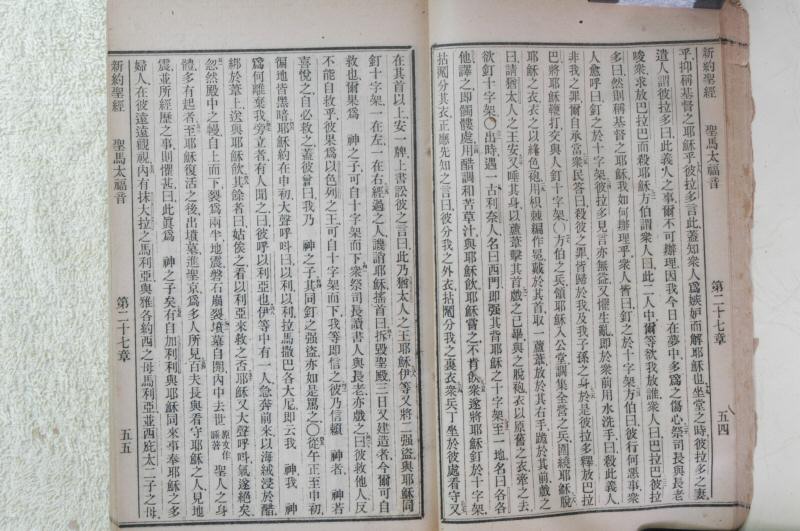 新約聖經　聖馬太福音　第二十七章　五四
乎抑稱基督之耶穌乎彼拉多言此蓋知衆人爲嫉妒而解耶穌也坐堂之時彼拉多之妻
遣人謂彼拉多曰此義人之事爾不可辦理因我今日在夢中多爲之傷心祭司長與長老
唆衆求放巴拉巴而殺耶穌方伯謂衆人曰此二人中爾等欲我放誰衆人曰巴拉巴彼拉
多曰然則稱基督之耶穌我如何辦理乎衆人皆曰釘之於十字架方伯曰彼行何惡事衆
人愈呼曰釘之於十字架彼拉多見言亦無益又懼生亂即於衆前用水洗手曰殺此義人
非我之罪爾自承當衆民答曰殺彼之罪皆歸於我及我子孫之身於是彼拉多釋放巴拉
巴將耶穌鞭打交與人釘十字架〇方伯之兵領耶穌入公堂調集全營之兵圍繞耶穌脫
耶穌之衣衣之以絳色袍用棘編作冕戴於其首取一蘆葦放於其右手跪於其前戲之
曰請猶太人之王安又唾其身以蘆葦擊其首戲之已畢與之脫袍衣以原舊之衣牽之去
欲釘十字架〇出時遇一古利奈人名曰西門即强其背耶穌之十字架至一地名曰各各
他譯之即髑髏處用醋調和苦草汁與耶穌飲耶穌嘗之不肯飲衆遂將耶穌釘於十字架
拈鬮分其衣正應先知之言曰彼分我之外衣拈鬮分我之裏衣衆兵丁坐於彼處看守又
在其首以上安一牌上書訟彼之言曰此乃猶太人之王耶穌伊等又將二强盜與耶穌同
釘十字架一在左一在右經過之人譏誚耶穌搖首曰拆毀聖殿三日又建造者今爾可自
救也爾果爲　神之子可自十字架而下衆祭司長讀書人與長老亦戲之曰彼救他人反
不能自救乎彼果爲以色列之王可自十字架而下我等即信之彼乃信賴　神者　神若
喜悅之自必救之蓋彼曾曰我乃　神之子其同釘之强盜亦如是罵之〇從午正至申初
徧地皆黑暗耶穌約在申初大聲呼呌曰以利以利拉馬撒巴各大尼即云我　神我　神
爲何離棄我旁立者有人聞之曰彼呼以利亞也伊等中有一人急奔前來以海絨浸於醋
綁於葦上送與耶穌飲其餘者曰姑俟之看以利亞來救之否耶穌又大聲呼呌氣遂絕矣
忽然殿中之幔自上而下裂爲兩半地震磐石崩裂墳墓自開內中去世原文作睡著聖人之身
體多有起者至耶穌復活之後出墳墓進聖京爲多人所見百夫長與看守耶穌之人見地
震並所經歷之事則懼甚曰此眞爲　神之子矣有自加利利與耶穌同來事奉耶穌之多
婦人在彼遠遠觀視內有抹大拉之馬利亞與雅各約西之母馬利亞並西庇太二子之母
新約聖經　聖馬太福音　第二十七章　五五